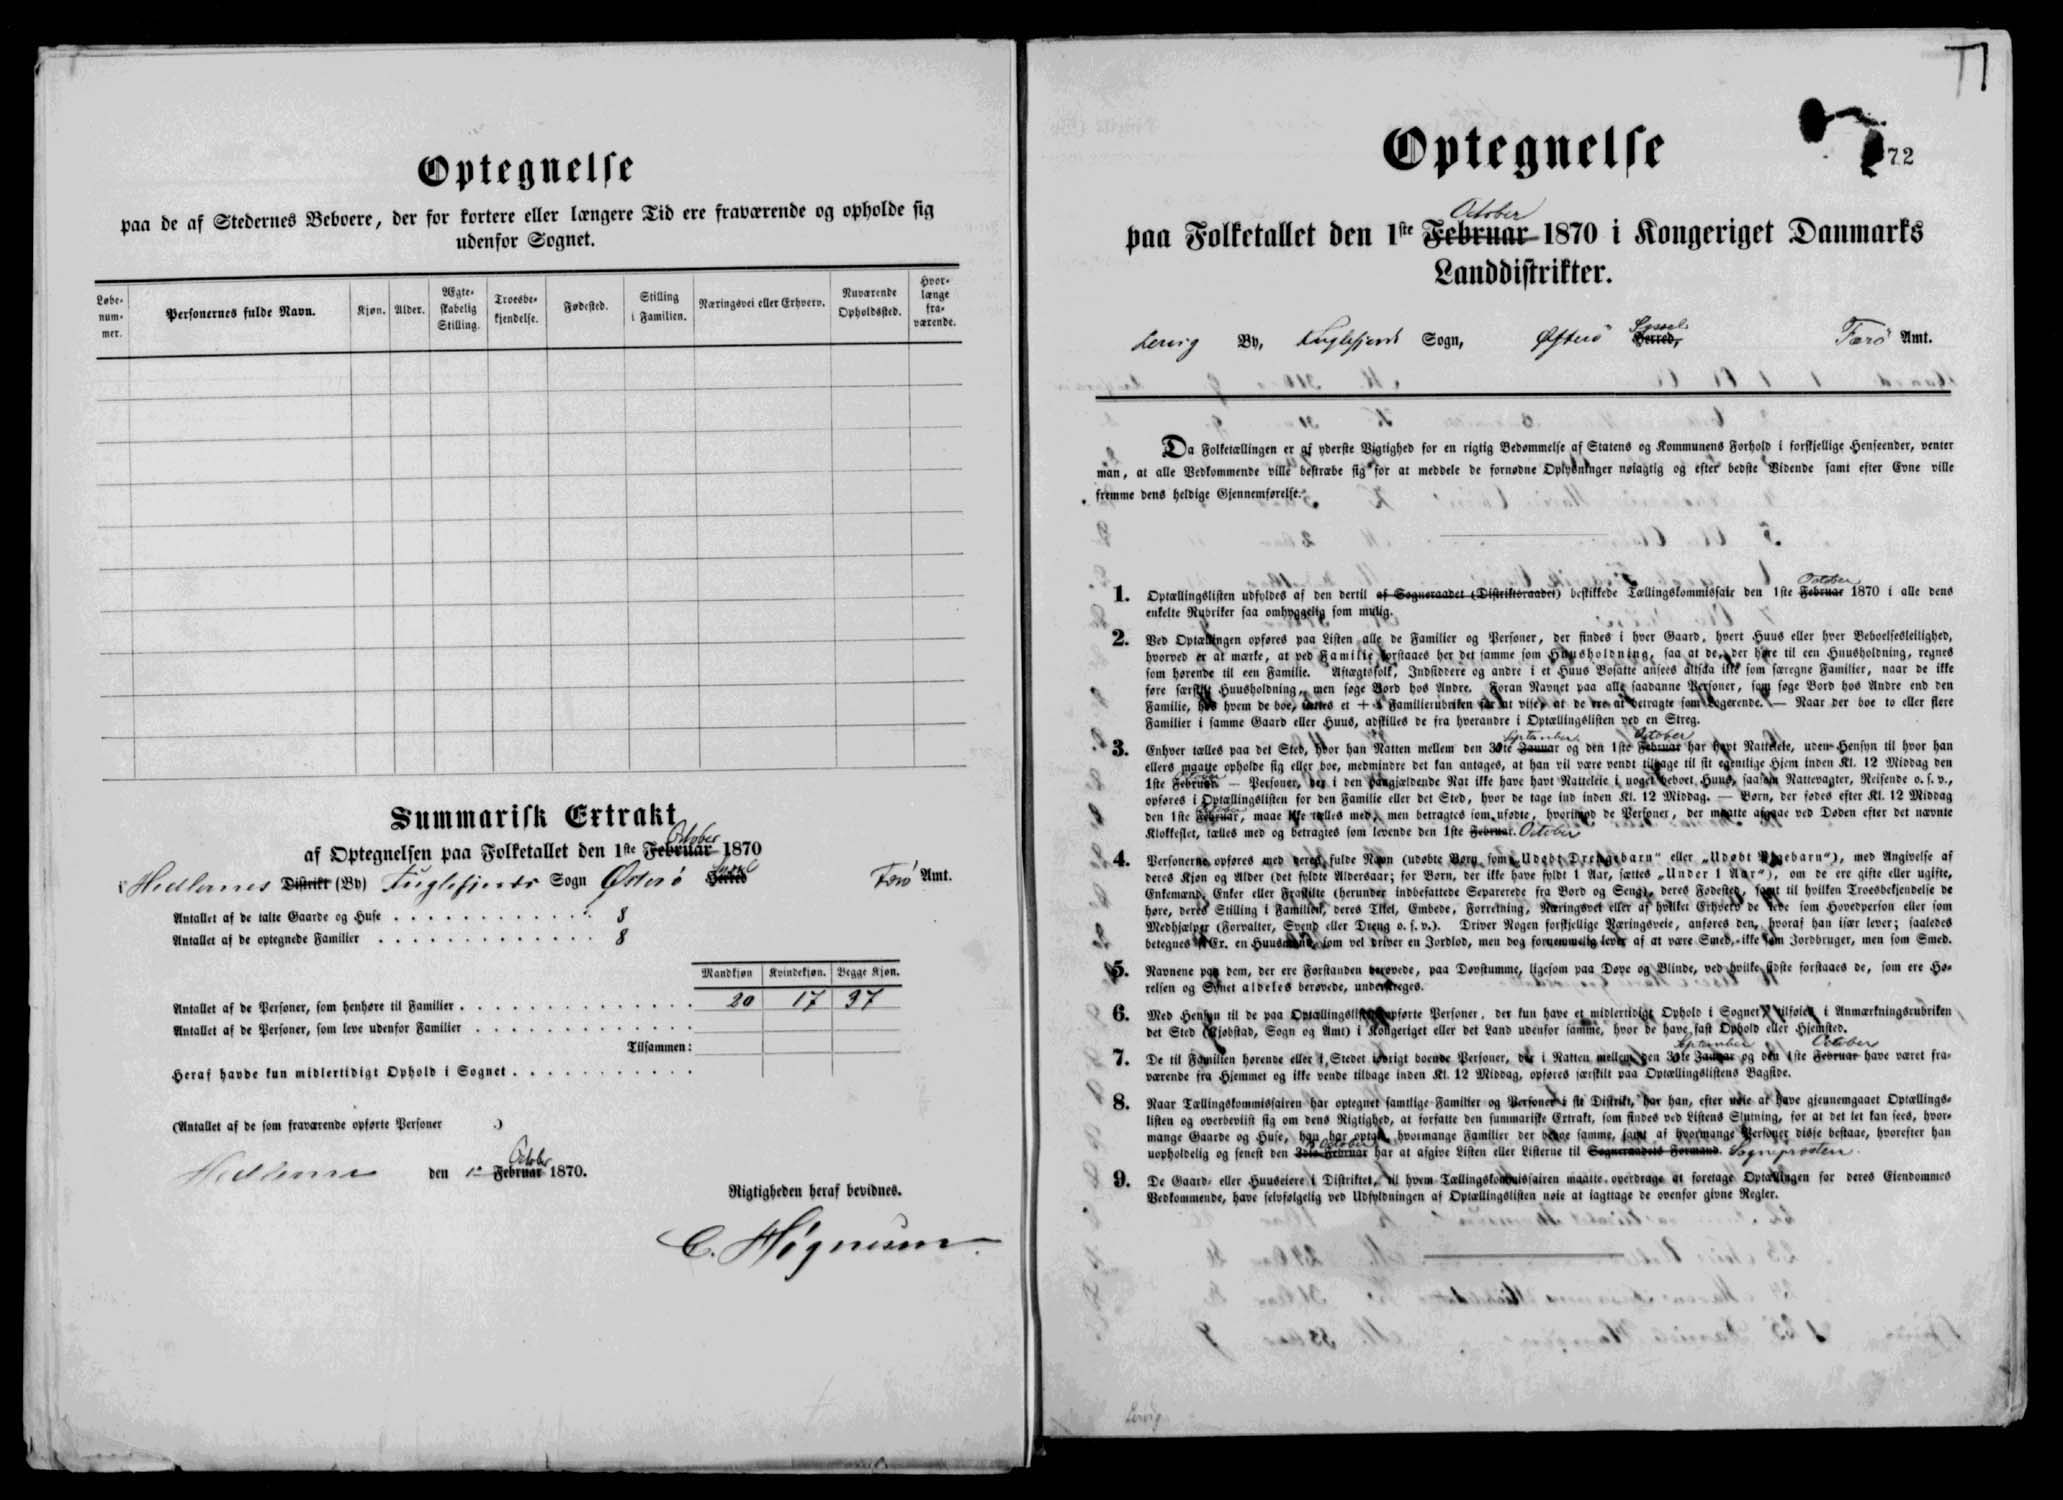 Optegnelse
paa de af Stedernes Beboere, der for kortere eller længere Tid ere fraværende og opholde sig
udenfor Sognet.
Løbe-
num-
mer.
Personernes fulde Navn.
Kjøn.
Alder.
Ægte-
skabelig
Stilling.
Troesbe-
kjendelse.
Fødested.
Stilling
i Familien.
Næringsvei eller Erhverv.
Nuværende
Opholdssted.
Hvor-
længe
fra-
værende.
Summarisk Extrakt
October
af Optegnelsen paa Folketallet den 1ste Februar 1870
Syssel
i Hellernes Distrikt (By) Fuglefjords Sogn Østerø Herred Færø Amt.
Antallet af de talte Gaarde og Huse 8
Antallet af de optegnede Familier 8
Mandkjøn Kvindekjøn. Begge Kjøn.
Antallet af de Personer, som henhøre til Familier 20 17 37
Antallet af de Personer, som leve udenfor Familier
Tilsammen:
Heraf havde kun midlertidigt Ophold i Sognet
(Antallet af de som fraværende opførte Personer )
October
Hellerne den 1ste Februar 1870.
Rigtigheden heraf bevidnes.
C. Høgnesen
72
Optegnelse
October
paa Folketallet den 1ste Februar 1870 i Kongeriget Danmarks
Landdistrikter.
Syssel
Lervig By, Fuglefjords Sogn, Østerø Herred, Færø Amt.
Da Folketællingen er af yderste Vigtighed for en rigtig Bedømmelse af Statens og Kommunens Forhold i forskjellige Henseender, venter
man, at alle Vedkommende ville bestræbe sig for at meddele de fornødne Oplysninger nøiagtig og efter bedste Vidende samt efter Evne ville
fremme dens heldige Gjennemførelse.
October
1. Optællingslisten udfyldes af den dertil af Sogneraadet (Distriktsraadet) beskikkede Tællingskommissair den 1ste Februar 1870 i alle dens
enkelte Rubriker saa omhyggelig som mulig.
2. Ved Optællingen opføres paa Listen alle de Familier og Personer, der findes i hver Gaard, hvert Huus eller hver Beboelsesleilighed,
hvorved er at mærke, at ved Familie forstaaes her det samme som Huusholdning, saa at de, der høre til een Huusholdning, regnes
som hørende til een Familie. Aftægtsfolk, Indsiddere og andre i et Huus Bosatte ansees altsaa ikke som særegne Familier, naar de ikke
føre særskilt Huusholdning, men søge Bord hos Andre. Foran Navnet paa alle saadanne Personer, som søge Bord hos Andre end den
Familie, hos hvem de boe, sættes et + i Familierubriken for at vise, at de ere at betragte som Logerende. — Naar der boe to eller flere
Familier i samme Gaard eller Huus, adskilles de fra hverandre i Optællingslisten ved en Streg.
September October
3. Enhver tælles paa det Sted, hvor han Natten mellem den 30te Januar og den 1ste Februar har havt Natteleie, uden Hensyn til hvor han
ellers maatte opholde sig eller boe, medmindre det kan antages, at han vil være vendt tilbage til sit egentlige Hjem inden Kl. 12 Middag den
October
1ste Februar. — Personer, der i den paagjældende Nat ikke have havt Natteleie i noget beboet Huus, saasom Nattevagter, Reisende o. s. v.,
opføres i Optællingslisten for den Familie eller det Sted, hvor de tage ind inden Kl. 12 Middag. — Børn, der fødes efter Kl. 12 Middag
October
den 1ste Februar, maae ikke tælles med, men betragtes som ufødte, hvorimod de Personer, der maatte afgaae ved Døden efter det nævnte
Klokkeslet, tælles med og betragtes som levende den 1ste Februar. October
4. Personerne opføres med deres fulde Navn (udøbte Børn som „Udøbt Drengebarn“ eller „Udøbt Pigebarn“), med Angivelse af
deres Kjøn og Alder (det fyldte Aldersaar; for Børn, der ikke have fyldt 1 Aar, sættes „Under 1 Aar“), om de ere gifte eller ugifte,
Enkemænd, Enker eller Fraskilte (herunder indbefattede Separerede fra Bord og Seng), deres Fødested, samt til hvilken Troesbekjendelse de
høre, deres Stilling i Familien, deres Titel, Embede, Forretning, Næringsvei eller af hvilket Erhverv de leve som Hovedperson eller som
Medhjælper (Forvalter, Svend eller Dreng o. s. v.). Driver Nogen forskjellige Næringsveie, anføres den, hvoraf han især lever; saaledes
betegnes f. Ex. en Huusmand, som vel driver en Jordlod, men dog fornemmelig lever af at være Smed, ikke som Jordbruger, men som Smed.
5. Navnene paa dem, der ere Forstanden berøvede, paa Døvstumme, ligesom paa Døve og Blinde, ved hvilke sidste forstaaes de, som ere Hø-
relsen og Synet aldeles berøvede, understreges.
6. Med Hensyn til de paa Optællingslisten opførte Personer, der kun have et midlertidigt Ophold i Sognet, tilføies i Anmærkningsrubriken
det Sted (Kjøbstad, Sogn og Amt) i Kongeriget eller det Land udenfor samme, hvor de have fast Ophold eller Hjemsted.
September October
7. De til Familien hørende eller i Stedet iøvrigt boende Personer, der i Natten mellem den 30te Januar og den 1ste Februar have været fra-
værende fra Hjemmet og ikke vende tilbage inden Kl. 12 Middag, opføres særskilt paa Optællingslistens Bagside.
8. Naar Tællingskommissairen har optegnet samtlige Familier og Personer i sit Distrikt, har han, efter nøie at have gjennemgaaet Optællings-
listen og overbevist sig om dens Rigtighed, at forfatte den summariske Extrakt, som findes ved Listens Slutning, for at det let kan sees, hvor-
mange Gaarde og Huse, han har optalt, hvormange Familier der beboe samme, samt af hvormange Personer disse bestaae, hvorefter han
October
uopholdelig og senest den 3die Februar har at afgive Listen eller Listerne til Sogneraadets Formand. Sognepræsten.
9. De Gaard- eller Huuseiere i Distriktet, til hvem Tællingskommissairen maatte overdrage at foretage Optællingen for deres Eiendommes
Vedkommende, have selvfølgelig ved Udfyldningen af Optællingslisten nøie at iagttage de ovenfor givne Regler.
Lervig